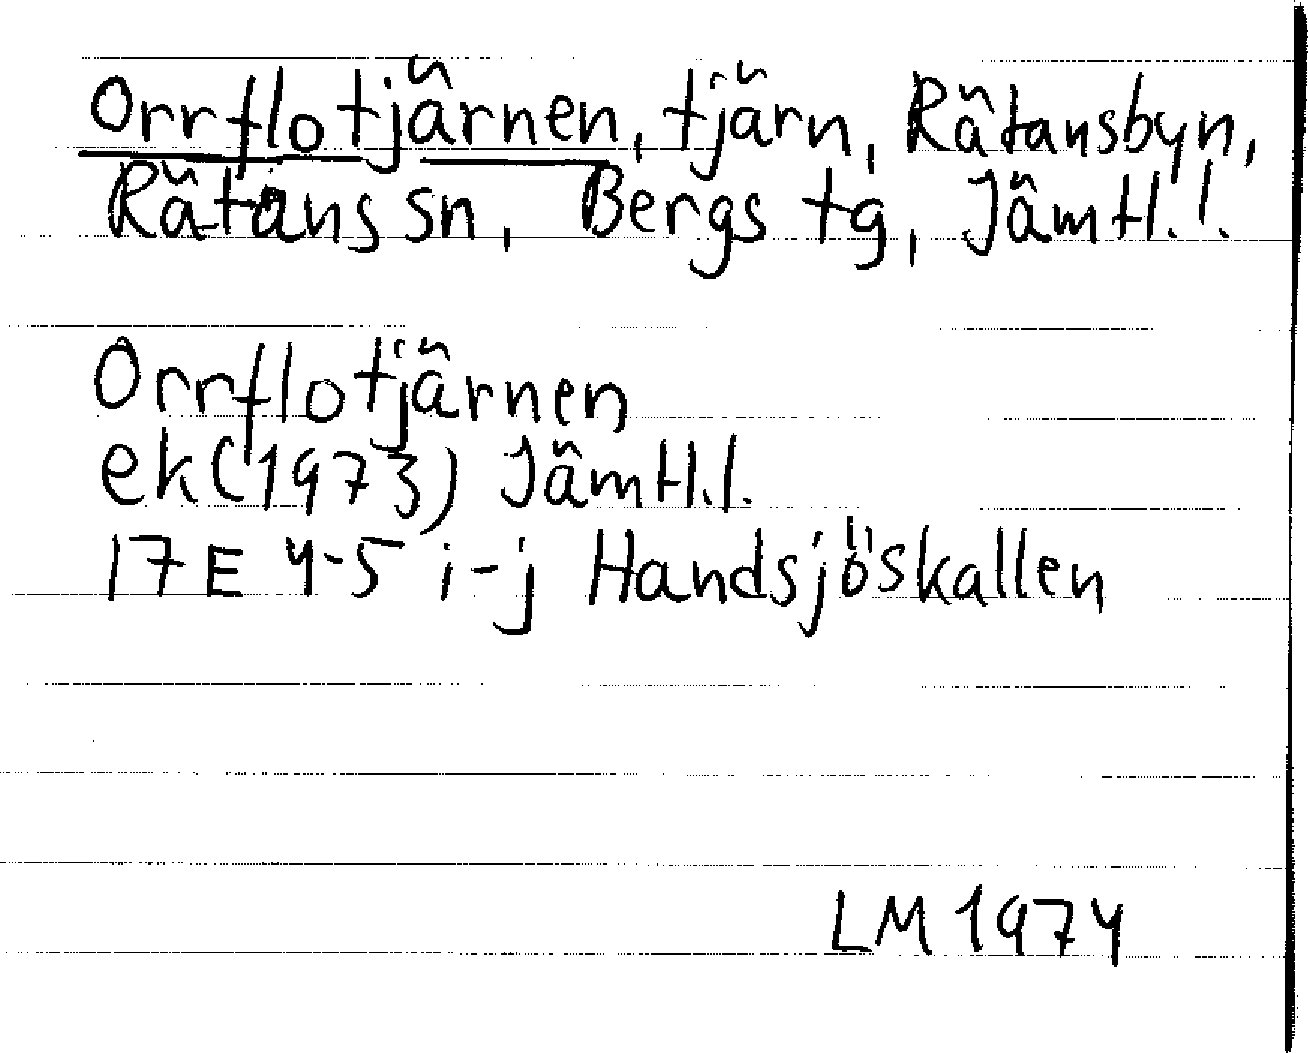 Orrflotjärnen, tjärn, Rätansbyn,
Rätans sn, Bergs tg, Jämtl.l.
Orrflotjärnen
ek(1973) Jämtl.l.
17E 4-5 i-j Handsjöskallen
LM 1974